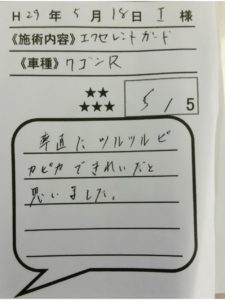 H29年5月18日 I 様
《施術内容》エクセレントガード
《車種》ワゴンR
★★
★★★
5/5
率直にツルツルピ
カピカできれいだと
思いました。